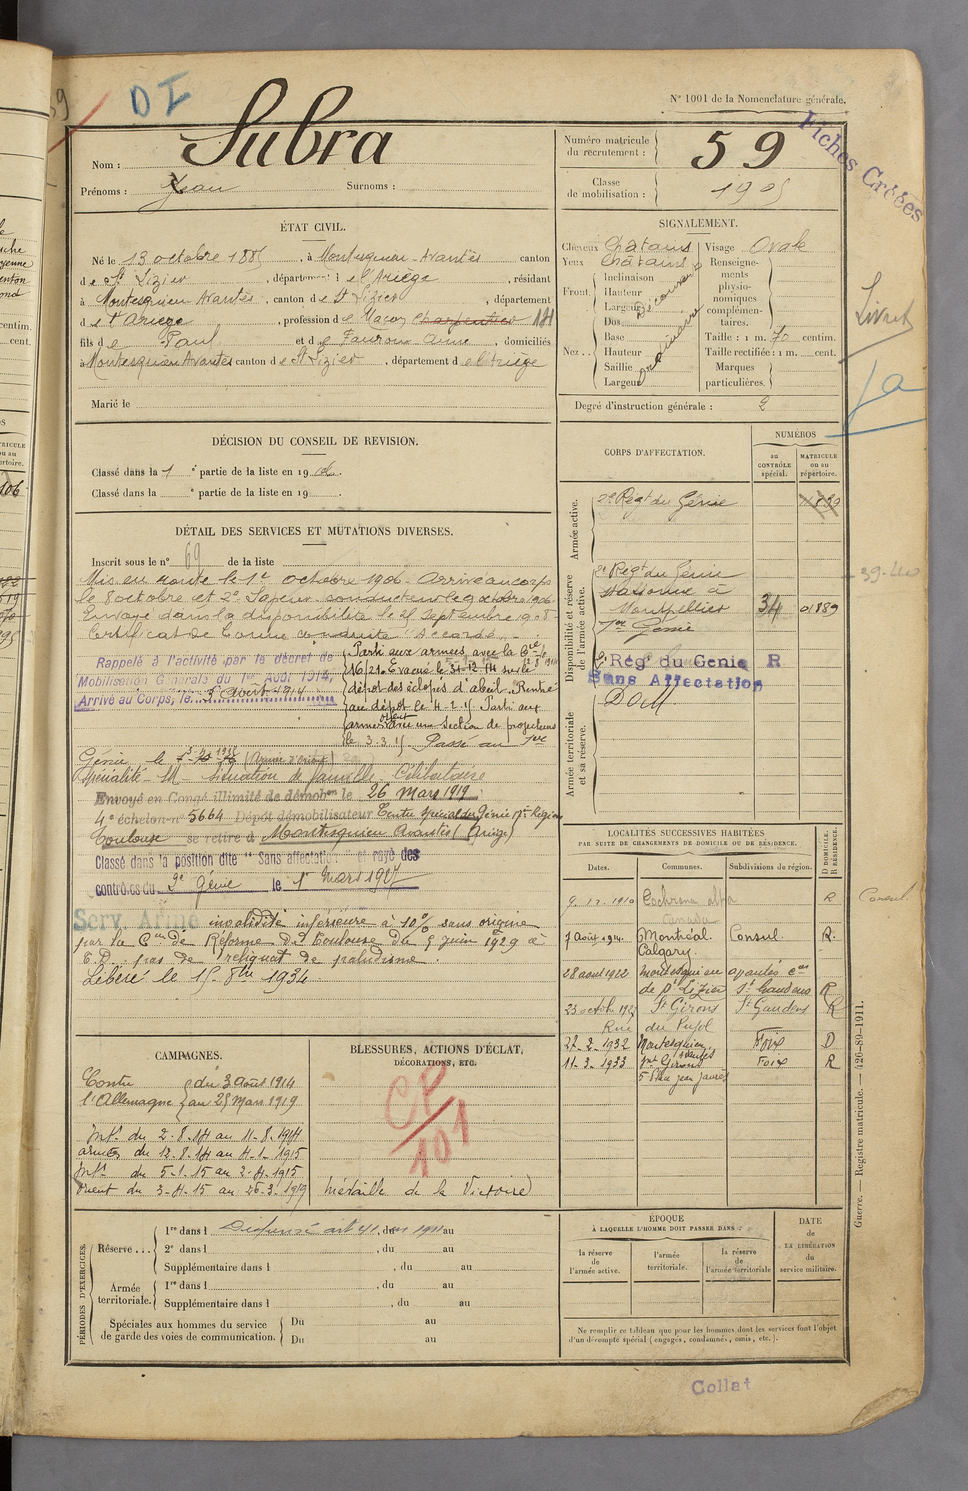 59
DI
N° 1001 de la Nomenclature générale.
Fiches Créées
Nom : Subra
Prénoms : Jean Surnoms :
Numéro matricule du recrutement : 59
Classe de mobilisation : 1905
ÉTAT CIVIL.
Né le 13 octobre 1885, à Montesquieu-Avantès canton
d e St Lizier, département d e l'Ariège, résidant
à Montesquieu Avantès, canton d e St Lizier, département
d e l'Ariège, profession d e Maçon Charpentier 14
fils d e Paul et d e Fauroux Anne, domiciliés
à Montesquieu Avantès canton d e St Lizier, département d e l'Ariège
Marié le
SIGNALEMENT.
Cheveux Châtains
Yeux Châtains
Front. Inclinaison Hauteur Largeur Découvert
Nez. Dos Base Hauteur Saillie Largeur Ordinaire
Visage Ovale
Renseignements physionomiques complémentaires.
Taille : 1 m. 70 centim.
Taille rectifiée : 1 m. cent.
Marques particulières.
Degré d'instruction générale : 2
Livret
DÉCISION DU CONSEIL DE REVISION.
Classé dans la 1 e partie de la liste en 19 06.
Classé dans la e partie de la liste en 19 .
CORPS D'AFFECTATION.
NUMÉROS
au CONTRÔLE spécial.
MATRICULE ou au répertoire.
Armée active.
2e Régt du Génie
Disponibilité et réserve de l'armée active.
2e Régt du Génie
stationné à
Montpellier 34 01889
7me Génie
39-40
2e Rég du Genie R
Sans Affectation
DOM
Armée territoriale et sa réserve.
DÉTAIL DES SERVICES ET MUTATIONS DIVERSES.
Inscrit sous le n° 69 de la liste
Mis en route le 1er octobre 1906. Arrivé au corps
le 8 octobre et 2e Sapeur-conducteur le 9 octobre 1906
Envoyé dans la disponibilité le 25 Septembre 1908
Certificat de bonne conduite "Accordé".
Rappelé à l'activité par le décret de
Mobilisation Générale du 1er Août 1914,
Arrivé au Corps, le 3 Août 1914
Parti aux armées avec la Cie
16/21. Evacué le 31-12-14 sur le
dépôt des éclopés d'abeil. Rentré
au dépôt le 4-2-15 Parti aux
armées avec une section de projecteurs
orient
le 3-3-15 Passé au 7me
Génie le
Spécialité M - Situation de famille - Célibataire
Envoyé en Congé illimité de démobon le 26 Mars 1919
4e échelon n° 5664 Dépôt démobilisateur Centre spécial du Génie 17e Région
Toulouse se retire à Montesquieu Avantès (Ariège)
Classé dans la position dite " Sans affectation " et rayé des
contrôles du 2e Génie le 1er Mars 1927
Serv. Armé invalidité inférieure à 10% sans origine
par la Con de Réforme de Toulouse du 5 juin 1929 à
E.D. pas de reliquat de paludisme.
Libéré le 15 8bre 1934
LOCALITÉS SUCCESSIVES HABITÉES
PAR SUITE DE CHANGEMENTS DE DOMICILE OU DE RÉSIDENCE.
Dates. Communes. Subdivisions de région. D DOMICILE. R RÉSIDENCE.
9.12.1910 Cochrane alta Canada R Consul.
7 Août 1914 Montréal. Calgary. Consul R.
28 aout 1922 Montesquieu avantès con de St Lizier St Gaudens R
23 octob 192 St Girons St Gaudens R
Rue du Pujol
22-2-1932 Montesquieu avantès Foix D
11-3-1933 St Girons Foix R
5 Rue Jean Jaurès
CAMPAGNES.
Contre l'Allemagne du 3 Août 1914 au 25 Mars 1919
Intr du 2-8-14 au 11-8-1914
armées du 12.8.14 au 4-1-1915
Intr du 5-1-15 au 2-4-1915
Orient du 3-4-15 au 26-3-1919
BLESSURES, ACTIONS D'ÉCLAT,
DÉCORATIONS, ETC.
CP
101
Médaille de la Victoire
PÉRIODES D'EXERCICES.
Réserve . . .
1re dans l Dispensé art 41, du en 1911 au
2e dans l , du au
Supplémentaire dans l , du au
Armée territoriale.
1re dans l , du au
Supplémentaire dans l , du au
Spéciales aux hommes du service de garde des voies de communication.
Du au
Du au
ÉPOQUE
À LAQUELLE L'HOMME DOIT PASSER DANS :
la réserve de l'armée active.
l'armée territoriale.
la réserve de l'armée territoriale
DATE DE LA LIBÉRATION du service militaire.
Ne remplir ce tableau que pour les hommes dont les services font l'objet
d'un décompte spécial (engagés, condamnés, omis, etc.).
Guerre. — Registre matricule. — 426-89-1911.
Collat